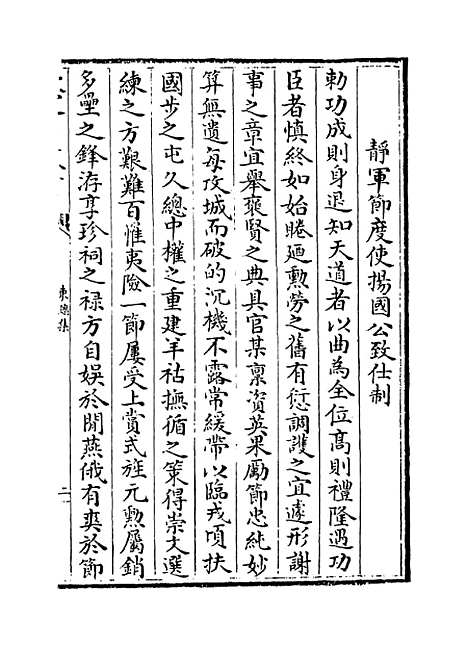 靜軍節度使揚國公致仕制
勅功成則身退知天道者以曲為全位髙則禮隆遇功
臣者慎終如始睠廼勲勞之舊有愆調䕶之宜遽形謝
事之章宜舉褒賢之典具官某禀資英果勵節忠純妙
算無遺每攻城而破的沉機不露常緩帶以臨戎頃扶
國步之屯久總中權之重建羊祜撫循之策得崇文選
練之方艱難百惟夷險一節屢受上賞式旌元勲屬銷
多壘之鋒洊享珍祠之禄方自娯於閒燕俄有爽於節
東牕集